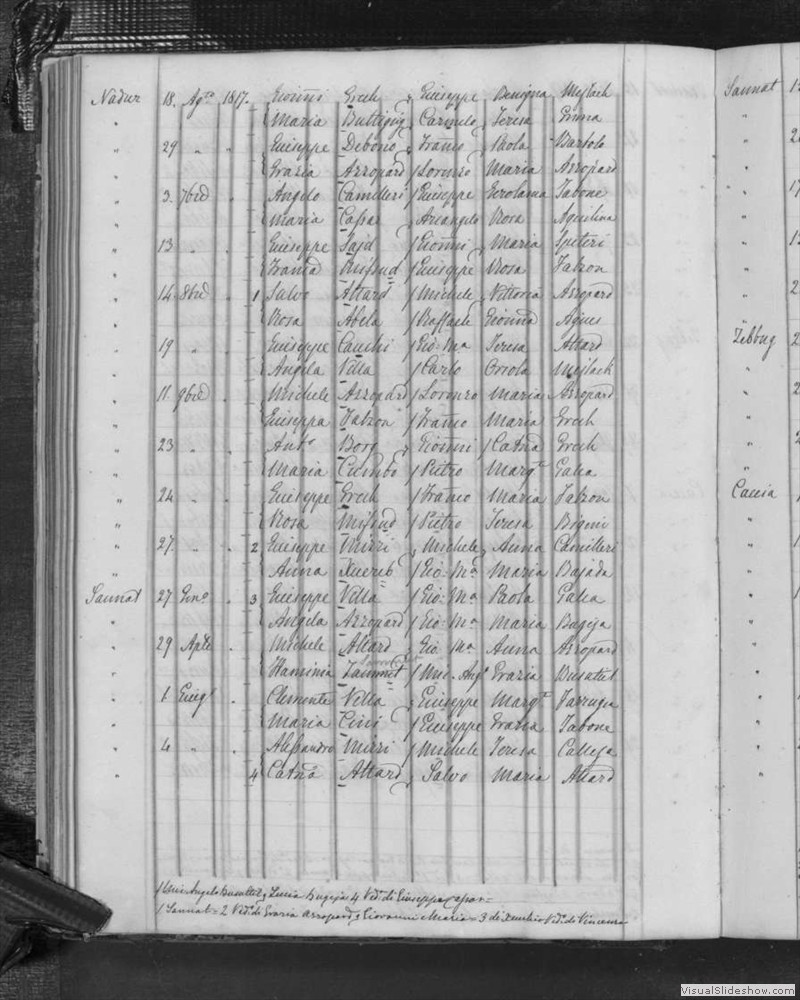 Nadur 18. Agto 1817. Gionni Grech Giuseppe Benigna Mejlach
" Maria Buttigieg Carmelo Teresa Grima
" 29 " " Giuseppe Debono Franco Paola Bartolo
" Grazia Azzopard Lorenzo Maria Azzopard
" 3. 7bre " Angelo Camilleri Giuseppe Gerolama Tabone
" Maria Cassar Arcangelo Rosa Agustina
" 13 " " Giuseppe Said Gionni Maria Spiteri
" Mifsud Giuseppe Rosa Falzon
" 14 8bre " 1 Salvo Attard Michele Vittoria Azzopard
" Rosa Abela Raffaele Agius
" 19 " Giuseppe Cauchi Gio: Ma Teresa Attard
" Angela Vella Carlo Orsola Mejlach
" 11. 9bre " Michele Azzopard Lorenzo Maria Azzopard
" Giuseppa Falzon Franco Maria Grech
" 23 " " Anto Borg Gionni Catna Grech
" Maria Cumbo Pietro Margta Galea
" 24 " " Giuseppe Grech Franco Maria Falzon
" Rosa Mifsud Pietro Teresa Bigeni
" 27. " " 2 Giuseppe Mizzi Michele Anna Camilleri
" Anna Xuereb Gio: Ma Maria Bajada
Sannat 27 Geno " 3 Giuseppe Vella Gio: Ma Paola Galea
" Angela Azzopard Gio: Ma Maria Bugeja
" 29 Aple " Michele Attard Gio Ma Anna Azzopard
" Flaminia Zammit Mic. Ango Grazia Busuttil
" 1 Giugo " Clemente Vella Giuseppe Margta Farrugia
" Maria Cini Giuseppe Grazia Tabone
" 4 " " Alessandro Mizzi Michele Teresa Calleja
" 4 Catna Attard Salvo Maria Attard
Mic: Angelo Busuttil, Lucia Bugeja 4 Veda di Giuseppe
1 Sannat = 2 Veda di Grazia Azzopard, Giovanni Maria = 3 di Veda di Vincenza
Sannat
Zebbug
Caccia
VisualSlideshow.com